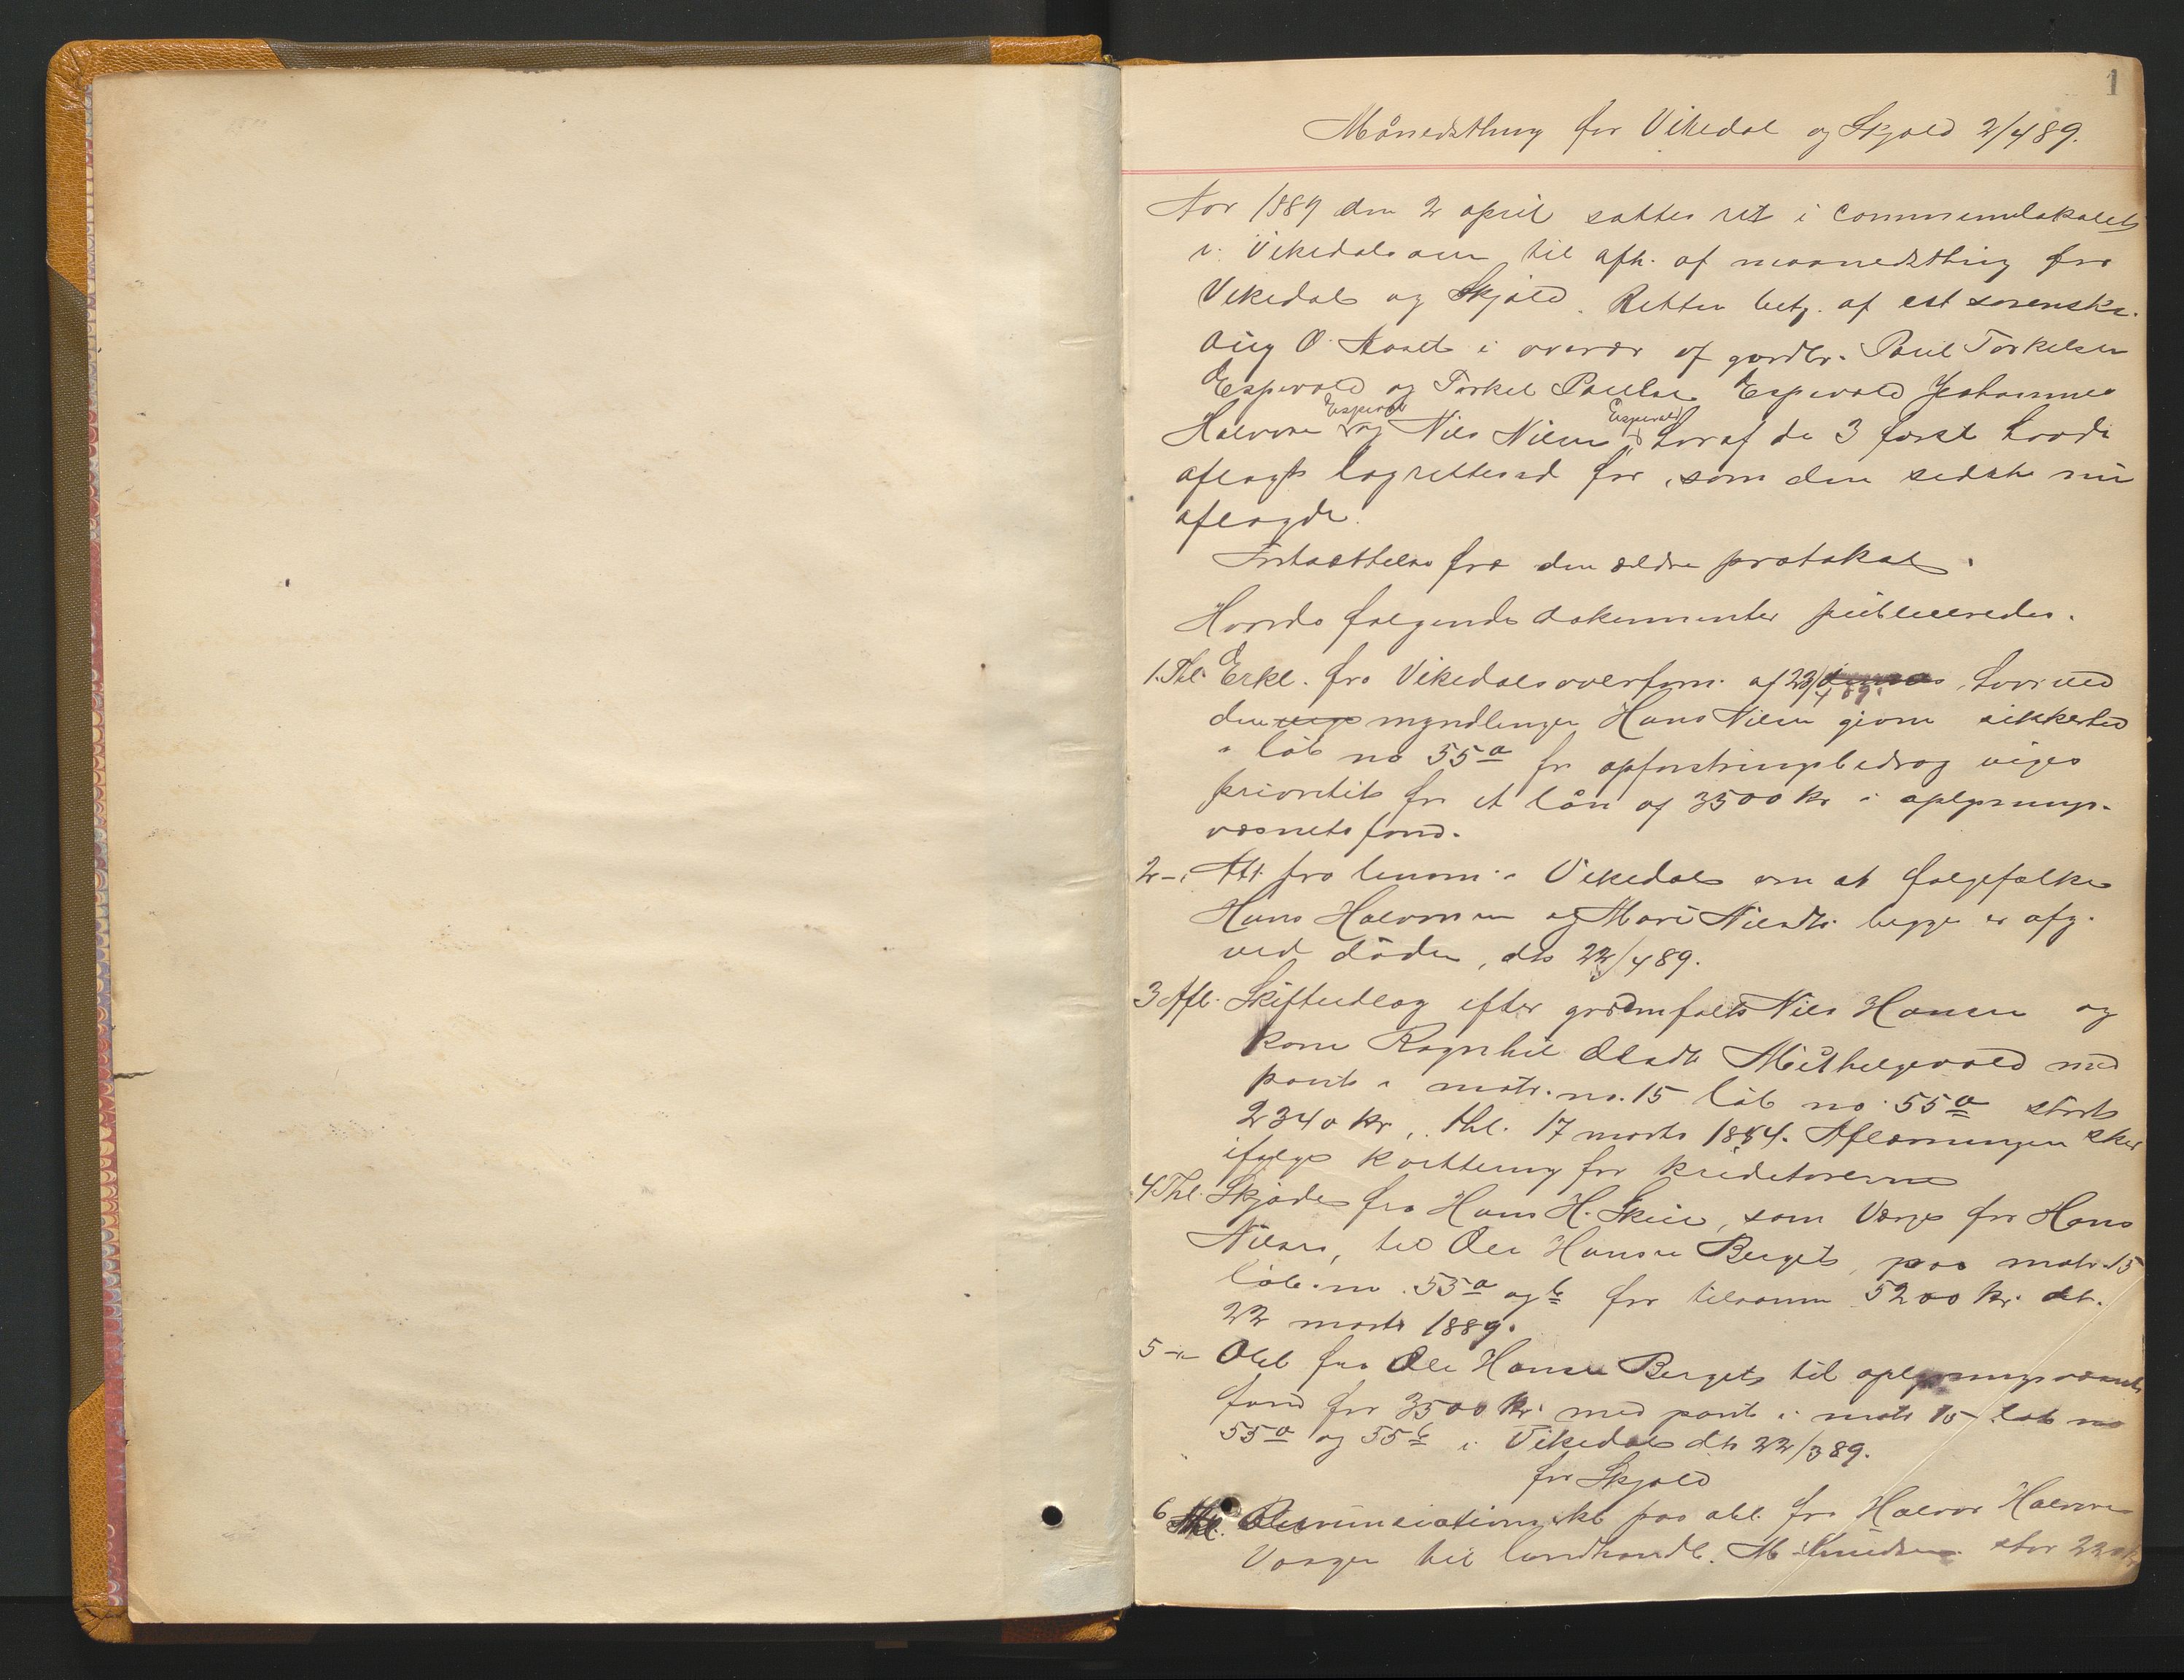 1
Månedsthing for Vikedal og Skjold 2/4 89.
Aar 1889 den 2 april sattes ret i communelokalet
i Vikedalsøen til afh. af maanedsthing for
Vikedal og Skjold. Retten betj. af cst sorenskr.
Aug O. i overvær af gårdbr. Poul Torkelsen
Espevold og Torkel Paulsen Espevold Johannes
Halvorsen Espevold og Nils Nilsen Espevold, hvoraf de 3 først havde
aflagt lagretteed før, som den sidste nu
aflagde.
Fortsættelse fra den ældre protokol.
Hvorda følgende dokumenter publiceredes.
1. Thl. Erkl. fra Vikedals overform. af 23/4 89, hvorved
den myndlingen Hans Nilsen givne sikkerhed
i løb no 55a for opfostringsbidrag viger
prioritet for et lån af 3500 kr i oplysnings-
væsnets fond.
2 -" Att. fra lensm. i Vikedal om at følgefolkene
Hans Halvorsen og Mari Nilsdtr. begge er afg.
ved døden, dt 22/4 89.
3 Afl. Skifteudlæg efter gårdmfolk Nils Hansen og
kone Ragnhil Olsdtr med
pant i matr. no. 15 løb no 55a stort
2340 kr, thl. 17 marts 1884. Aflæsningen sker
ifølge kvittering fra kreditorerne
4. Thl. Skjøde fra Hans H. Skeie, som Værge for Hans
Nilsen, til Ole Hansen Berget, paa matr. 15
løb. no. 55a og b for tilsamm 5200 kr. dt.
22 marts 1889.
5 -" Obl fra Ole Hansen Berget til oplysningsvæsnets
fond for 3500 kr. med pant i matr 15 løb no
55a og 55b i Vikedal dt 22/3 89.
for Skjold
6 Thl. Renunciations paa obl. fra Halvor Halvorsen
Vaage til landhandl. M. Knudsen stor 220 kr